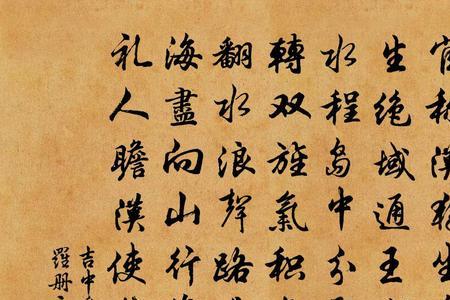 官称漢独坐
生绝域通王
水程島中分
轉双旌氣积
翻水浪聲路
海盡向山行
礼人瞻漢使
吉中
羅册